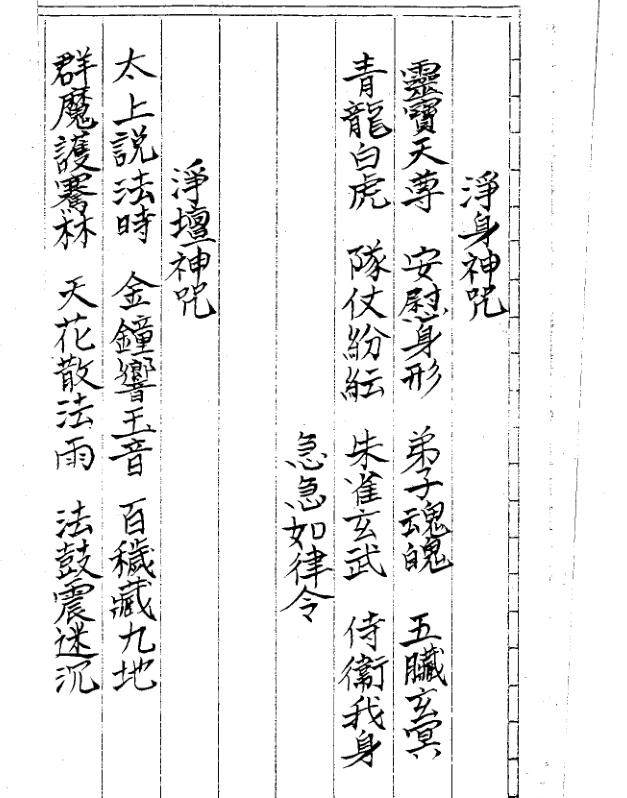 淨身神咒
靈寶天尊 安慰身形 弟子魂魄 五臟玄冥
青龍白虎 隊仗紛紜 朱雀玄武 侍衞我身
急急如律令
淨壇神咒
太上說法時 金鐘響玉音 百穢藏九地
群魔護騫林 天花散法雨 法鼓震迷沉